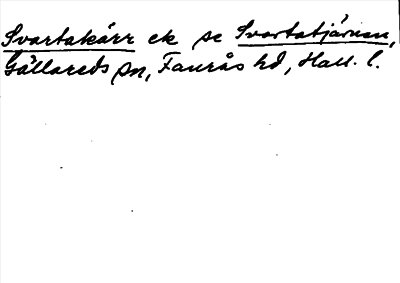 Svartakärr ek se Svartatjärnen,
Gällareds sn, Faurås hd, Hall. l.